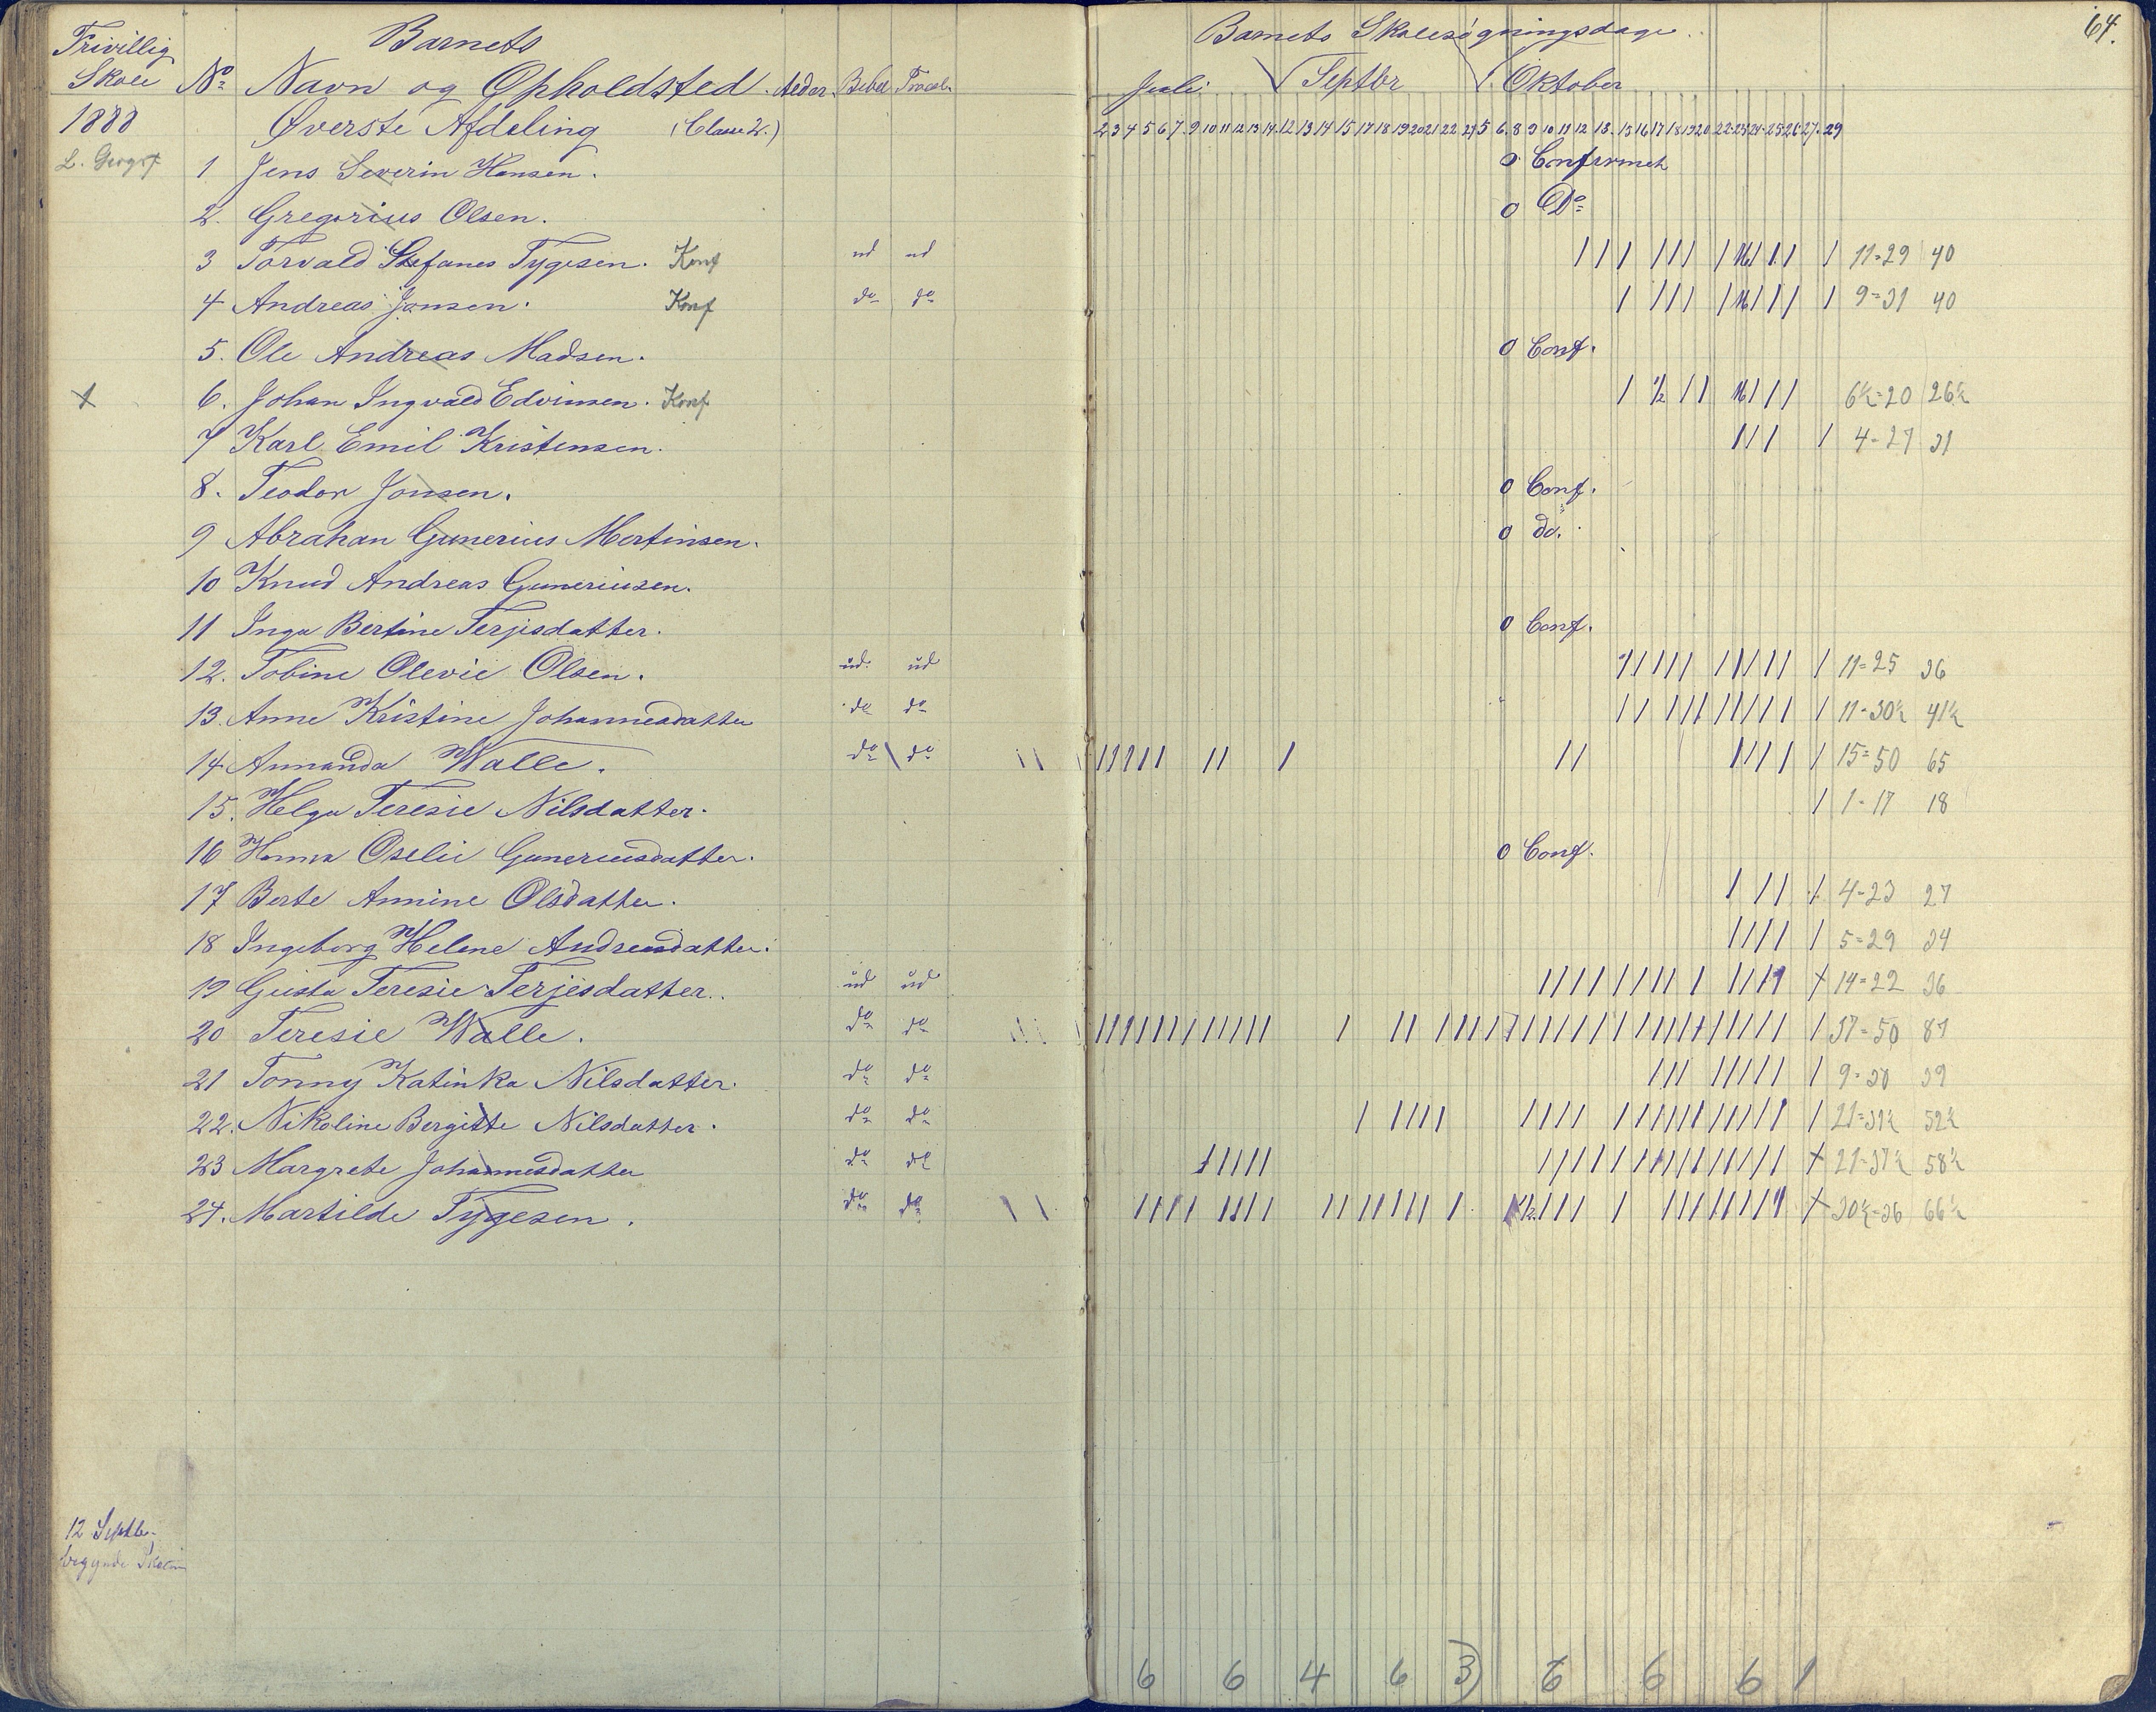 Frivillig Barnets
Skole No Navn og Opholdsted. Alder. Bibel Barnets Skolesøgningsdage. 64.
Juli Septbr Oktober
1888 Øverste Afdeling (Classe 2.) 2 3 4 5 6 7 9 10 11 12 13 14 12 13 14 15 17 18 19 20 21 22 24 5 6 8 9 10 11 12 13 15 16 17 18 19 20 22 23 24 25 26 27 29
1 Jens Severin Hansen. 0 Confirmet
2. Gregorius Olsen. 0 Do
3 Torvald Stefanes Tygesen. Konf ud ud 11=29 40
4 Andreas Jansen. Konf do do 9=31 40
5. Ole Andreas Madsen. 0 Conf.
6. Johan Ingvald Edvinsen. Konf 1/2 6½=20 26½
7 Karl Emil Kristensen. 4-27 31
8. Teodor Jonsen. 0 Conf.
9 Abrahan Gunerius Mortinsen. 0 do.
10 Knud Andreas Guneriusen.
11 Inga Bertine Terjisdatter. 0 Conf.
12. Tobine Olevie Olsen. ud. ud 11=25 36
13. Anne Kristine Johannesdatter do do 11-30½ 41½
14 Annanda Walle. do do 15=50 65
15. Helga Teresie Nilsdatter. 1-17 18
16 Hanna Oselie Guneriusdatter. 0 Conf.
17 Berte Annine Olsdatter. 4-23 27
18 Ingeborg Helene Andreasdatter. 5=29 34
19 Gusta Teresie Terjesdatter. ud ud 14=22 36
20 Teresie Walle. do do 37=50 87
21 Tonny Katinka Nilsdatter. do do 9=30 39
22. Nikoline Bergitte Nilsdatter. do do 21=31½ 52½
23 Margrete Johannesdatter do do 21=37½ 58½
24. Martilde Tygesen. do do 30½=36 66½
12 Septbr.
begynde Skolen
6 6 4 6 3) 6 6 6 1